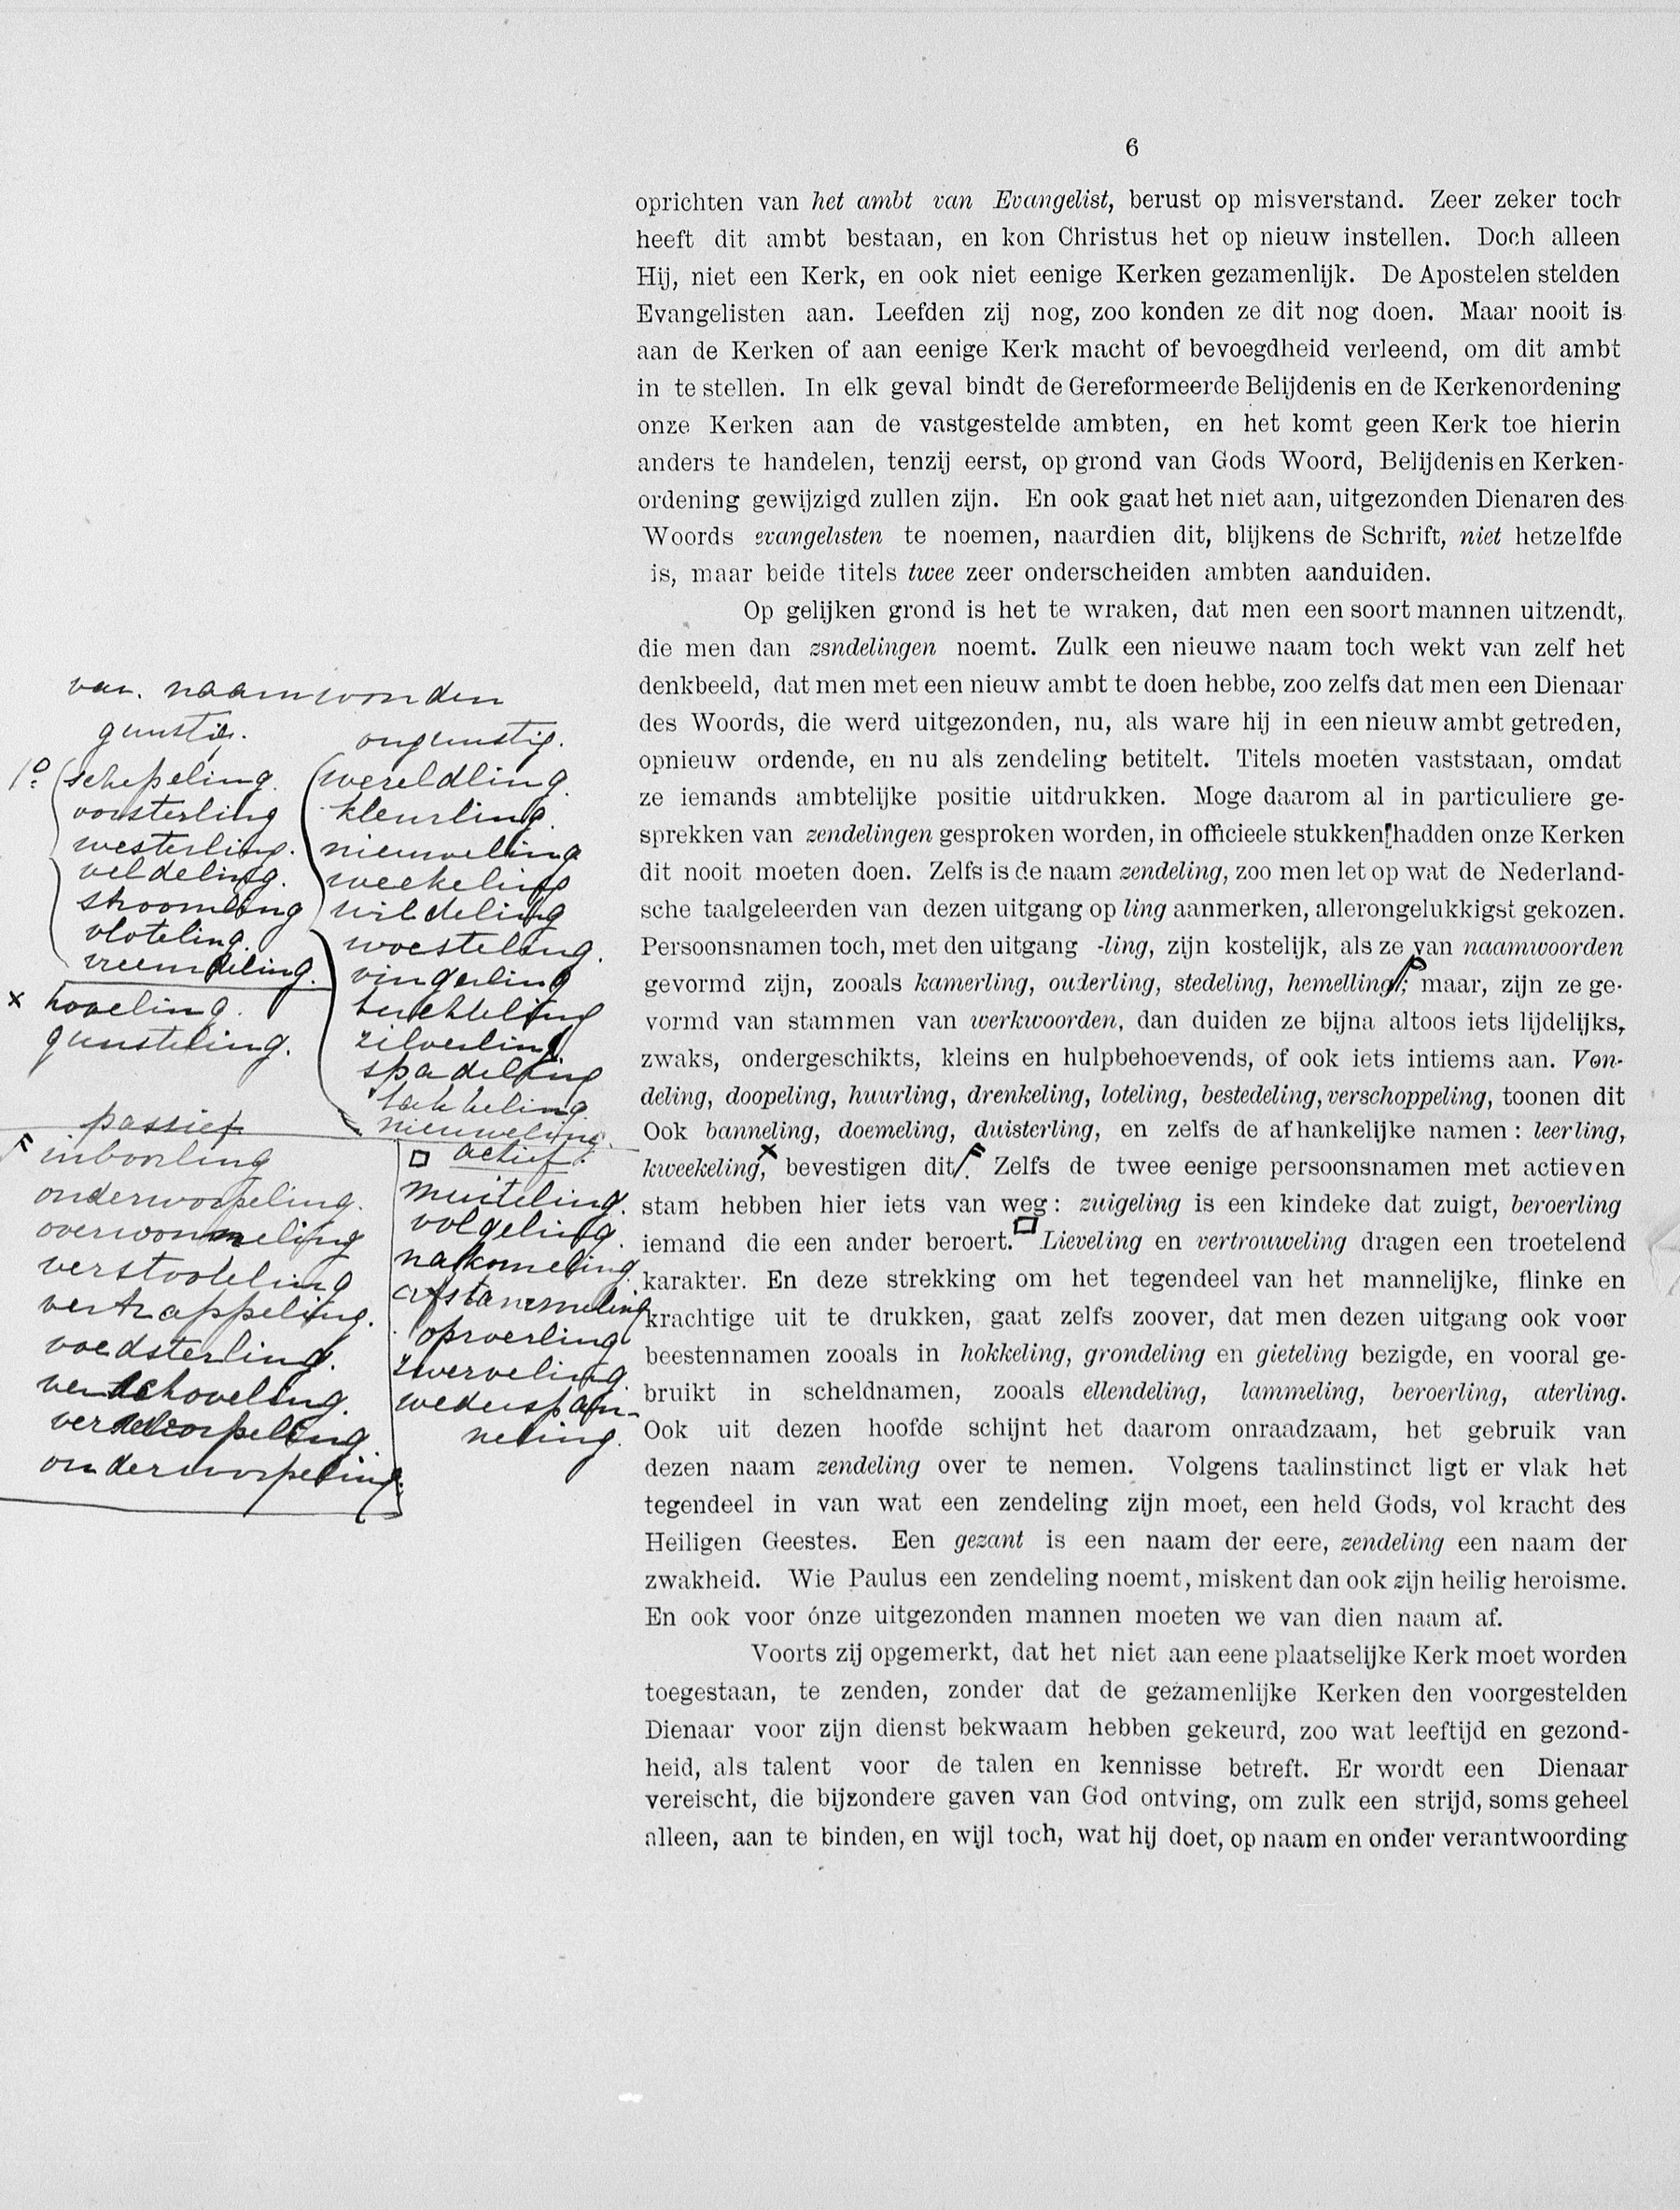 6
oprichten van het ambt van Evangelist, berust op misverstand. Zeer zeker toch
heeft dit ambt bestaan, en kon Christus het op nieuw instellen. Doch alleen
Hij, niet een Kerk, en ook niet eenige Kerken gezamenlijk. De Apostelen stelden
Evangelisten aan. Leefden zij nog, zoo konden ze dit nog doen. Maar nooit is
aan de Kerken of aan eenige Kerk macht of bevoegdheid verleend, om dit ambt
in te stellen. In elk geval bindt de Gereformeerde Belijdenis en de Kerkenordening
onze Kerken aan de vastgestelde ambten, en het komt geen Kerk toe hierin
anders te handelen, tenzij eerst, op grond van Gods Woord, Belijdenis en Kerken-
ordening gewijzigd zullen zijn. En ook gaat het niet aan, uitgezonden Dienaren des
Woords evangelisten te noemen, naardien dit, blijkens de Schrift, niet hetzelfde
is, maar beide titels twee zeer onderscheiden ambten aanduiden.
Op gelijken grond is het te wraken, dat men een soort mannen uitzendt,
die men dan zsndelingen noemt. Zulk een nieuwe naam toch wekt van zelf het
denkbeeld, dat men met een nieuw ambt te doen hebbe, zoo zelfs dat men een Dienaar
des Woords, die werd uitgezonden, nu, als ware hij in een nieuw ambt getreden,
opnieuw ordende, en nu als zendeling betitelt. Titels moeten vaststaan, omdat
ze iemands ambtelijke positie uitdrukken. Moge daarom al in particuliere ge-
sprekken van zendelingen gesproken worden, in officieele stukken[hadden onze Kerken
dit nooit moeten doen. Zelfs is de naam zendeling, zoo men let op wat de Nederland-
sche taalgeleerden van dezen uitgang op ling aanmerken, allerongelukkigst gekozen.
Persoonsnamen toch, met den uitgang -ling, zijn kostelijk, als ze van naamwoorden
gevormd zijn, zooals kamerling, ouderling, stedeling, hemelling; maar, zijn ze ge-
vormd van stammen van werkwoorden, dan duiden ze bijna altoos iets lijdelijks,
zwaks, ondergeschikts, kleins en hulpbehoevends, of ook iets intiems aan. Von-
deling, doopeling, huurling, drenkeling, loteling, bestedeling, verschoppeling, toonen dit
Ook banneling, doemeling, duisterling, en zelfs de afhankelijke namen: leerling,
kweekeling, x bevestigen dit F. Zelfs de twee eenige persoonsnamen met actieven
stam hebben hier iets van weg: zuigeling is een kindeke dat zuigt, beroerling
iemand die een ander beroert. □ Lieveling en vertrouweling dragen een troetelend
karakter. En deze strekking om het tegendeel van het mannelijke, flinke en
krachtige uit te drukken, gaat zelfs zoover, dat men dezen uitgang ook voor
beestennamen zooals in hokkeling, grondeling en gieteling bezigde, en vooral ge-
bruikt in scheldnamen, zooals ellendeling, lammeling, beroerling, aterling.
Ook uit dezen hoofde schijnt het daarom onraadzaam, het gebruik van
dezen naam zendeling over te nemen. Volgens taalinstinct ligt er vlak het
tegendeel in van wat een zendeling zijn moet, een held Gods, vol kracht des
Heiligen Geestes. Een gezant is een naam der eere, zendeling een naam der
zwakheid. Wie Paulus een zendeling noemt, miskent dan ook zijn heilig heroisme.
En ook voor ónze uitgezonden mannen moeten we van dien naam af.
Voorts zij opgemerkt, dat het niet aan eene plaatselijke Kerk moet worden
toegestaan, te zenden, zonder dat de gezamenlijke Kerken den voorgestelden
Dienaar voor zijn dienst bekwaam hebben gekeurd, zoo wat leeftijd en gezond-
heid, als talent voor de talen en kennisse betreft. Er wordt een Dienaar
vereischt, die bijzondere gaven van God ontving, om zulk een strijd, soms geheel
alleen, aan te binden, en wijl toch, wat hij doet, op naam en onder verantwoording
van naamwoorden
gunstig.
1o schepeling.
oosterling
westerling.
veldeling.
stroomling
vloteling.
vreemdeling.
x hoveling.
gunsteling.
ongunstig.
wereldling.
kleurling.
nieuweling
weekeling
wildeling
woesteling.
vingerling
tuchteling
zilverling
spadeling
takkeling.
nieuweling.
passief
F inboorling
onderworpeling.
overwonneling
verstooteling
vertrappeling.
voedsterling.
verschoveling.
verworpeling.
onderworpeling.
□ actief.
muiteling.
volgeling.
nakomeling.
afstammeling
oproerling
zwerveling.
wederspan-
neling.